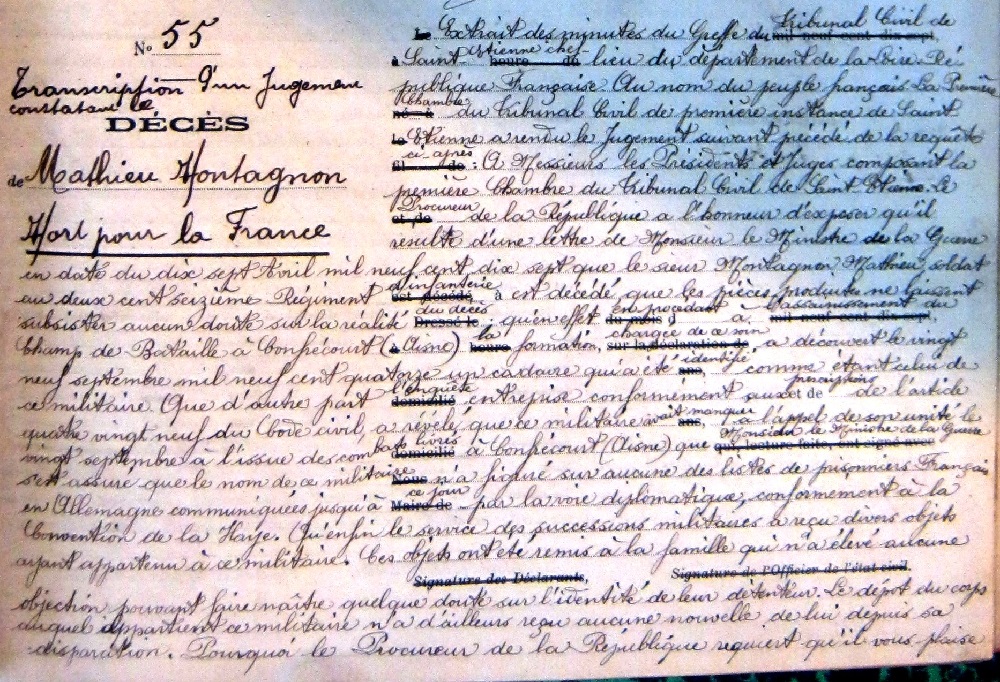 N° 55
Transcription d'un Jugement
constatant le
DÉCÈS
de Mathieu Montagnon
Mort pour la France
Le Extrait des minutes du Greffe du mil neuf cent dix-sept, Tribunal Civil de
à Saint-Etienne chef- heure de lieu du département de la Loire. Ré-
publique Française. Au nom du peuple français La Première
Chambre né à du Tribunal Civil de première instance de Saint
le Etienne a rendu le Jugement suivant précédé de la requête
ci-après fils de : A Messieurs les Présidents et Juges composant la
première Chambre du Tribunal Civil de Saint Etienne. Le
Procureur et de de la République a l'honneur d'exposer qu'il
résulte d'une lettre de Monsieur le Ministre de la Guerre
en date du dix sept Avril mil neuf cent dix sept que le sieur Montagnon Mathieu, soldat
au deux cent seizième Régiment d'infanterie est décédé, à est décédé, que les pièces produites ne laissent
subsister aucun doute sur la réalité du décès Dressé le ; qu'en effet en procédant du mois d à l'assainissement du mil neuf cent dix-sept,
Champ de Bataille à Confrécourt (à Aisne) heure la formation, chargée de ce soin sur la déclaration de a découvert le vingt
neuf septembre mil neuf cent quatorze un cadavre qui a été identifié ans, comme étant celui de
ce militaire. Que d'autre part l'enquête domicilié entreprise conformément aux prescriptions et de de l'article
quatre vingt neuf du Code civil, a révélé que ce militaire avait manqué ans, à l'appel de son unité le
vingt septembre à l'issue des combats livrés domicilié à Confrécourt (Aisne) que Monsieur le Ministre de la Guerre qui, lecture faite, ont signé avec
s'est assuré que le nom de ce militaire Nous n'a figuré sur aucune des listes de prisonniers Français
en Allemagne communiquées jusqu'à ce jour Maire de par la voie diplomatique, conformément à la
Convention de la Haye. Qu'enfin le service des successions militaires a reçu divers objets
ayant appartenu à ce militaire. Ces objets ont été remis à la famille qui n'a élevé aucune
Signature des Déclarants, Signature de l'Officier de l'état civil
objection pouvant faire naître quelque doute sur l'identité de leur détenteur. Le dépôt du corps
auquel appartient ce militaire n'a d'ailleurs reçu aucune nouvelle de lui depuis sa
disparation. Pourquoi le Procureur de la République requiert qu'il vous plaise